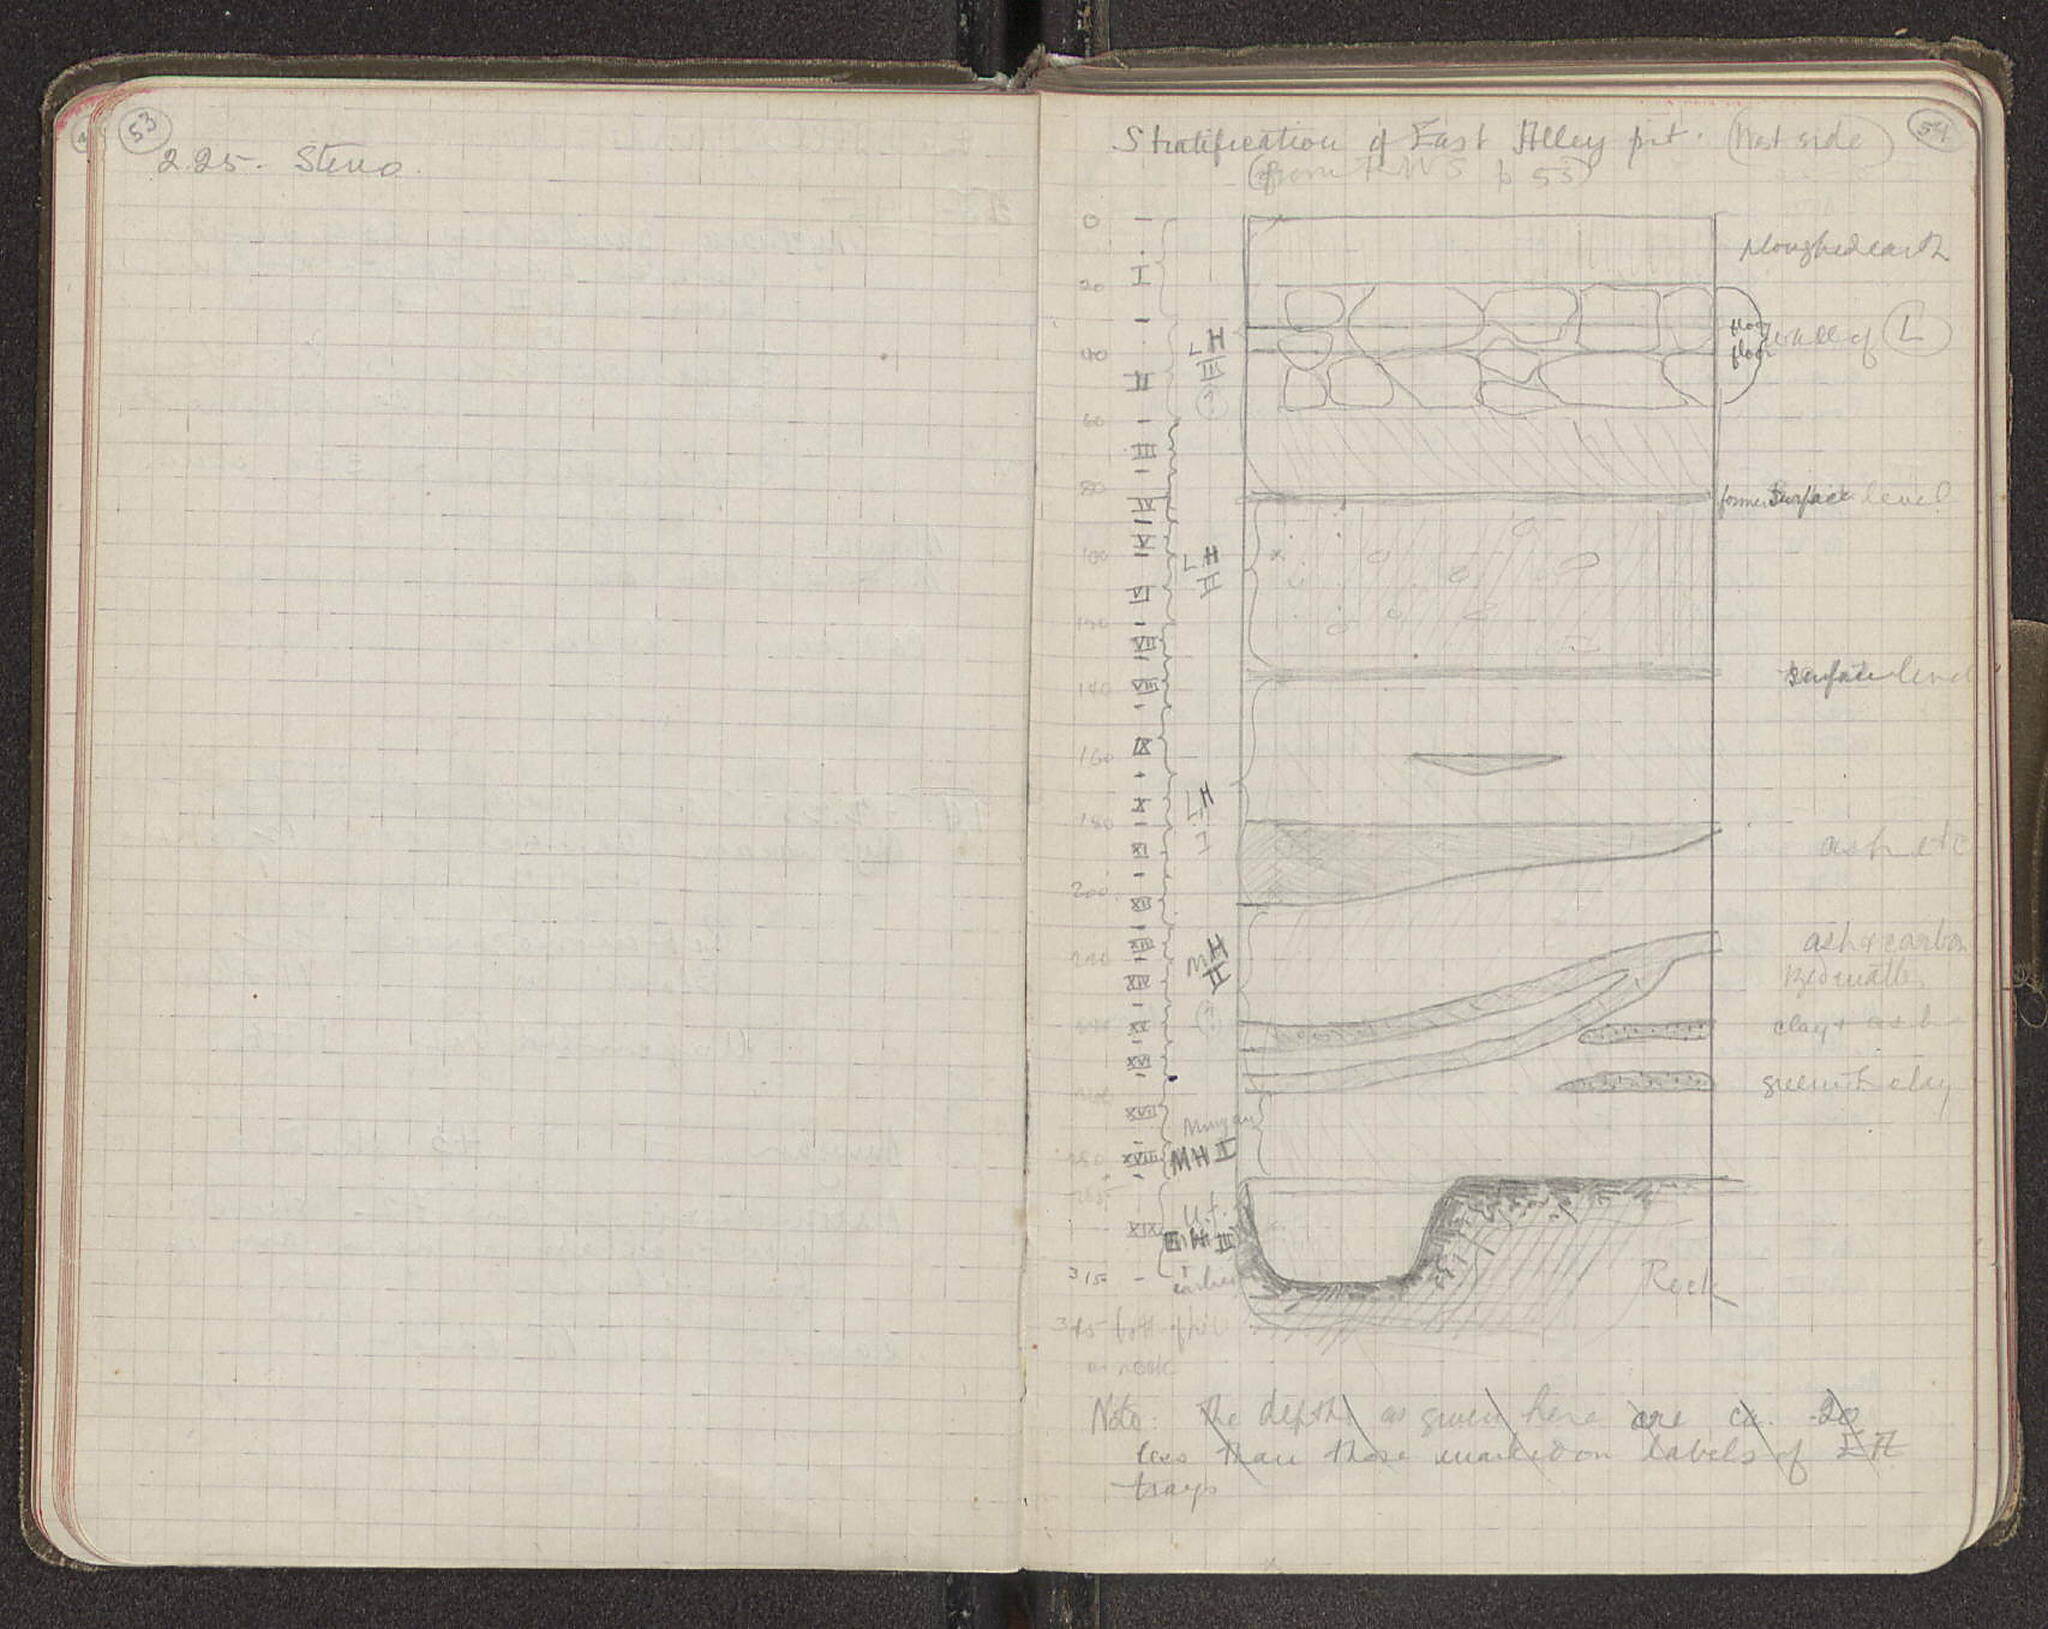 53
2.25. Steno.
54
Stratification of East Alley pit. (West side)
(from HWS p 53)
0
I
20
ploughed earth
LH
III
(?)
40
II
floor
floor
wall of L
60
III
80
IV
former surface level
V
100
LH
II
VI
120
VII
140
VIII
surface level
IX
160
X
180
LH
I
XI
ash etc
200
XII
XIII
MH
II
(?)
XIV
ash & carbon
Red matter
XV
clay + ash
XVI
greenish clay
XVII
Minyan
XVIII
MH I
XIX
U.f.
EH III
earlier
315
Rock
345 bott of pit
on rock
Note: The depths as given here are ca. .20
less than those marked on labels of EA
trays